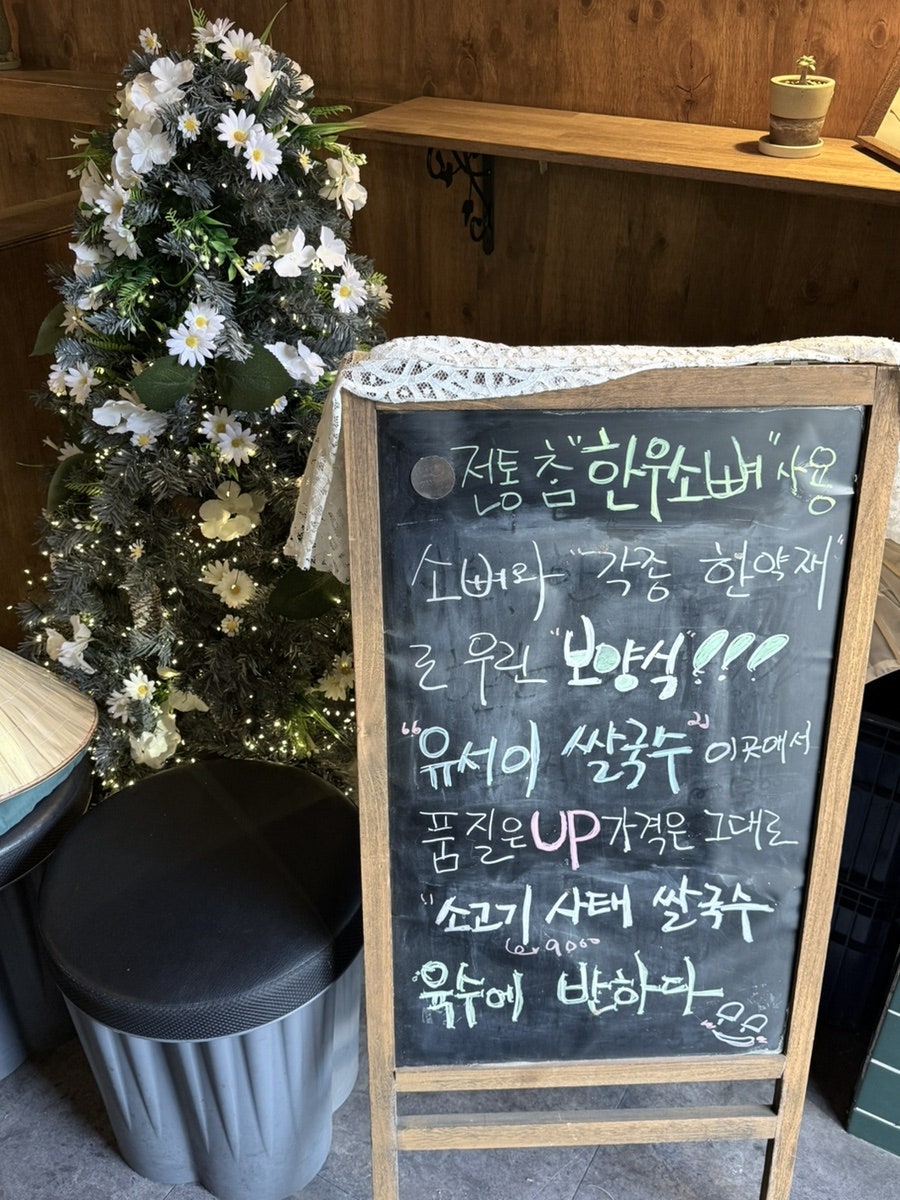 전통 참 "한우소뼈" 사용
소뼈와 "각종 한약재"
로 우린 "보양식"!!!
"유서이 쌀국수" 이곳에서
품질은 UP 가격은 그대로
"소고기 사태 쌀국수
9000
육수에 반하다